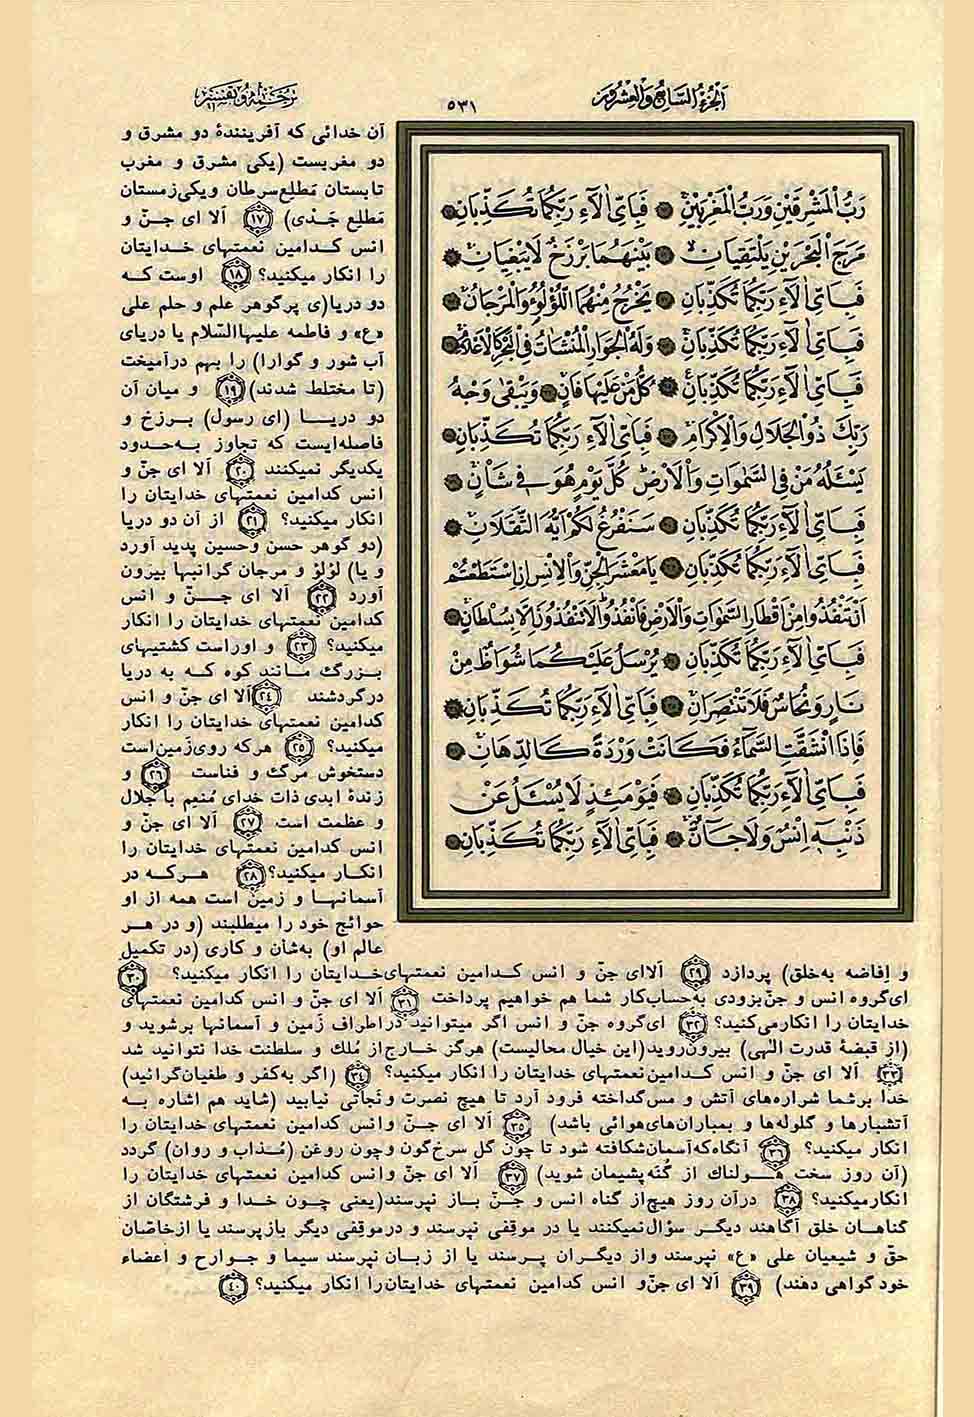 اَلْجُزْءُ السَّابِعُ وَالْعِشْرُونَ
۵۳۱
ترجمه و تفسیر
رَبُّ الْمَشْرِقَيْنِ وَرَبُّ الْمَغْرِبَيْنِ ﴿۱۷﴾ فَبِاَيِّ اٰلَاۤءِ رَبِّكُمَا تُكَذِّبَانِ ﴿۱۸﴾
مَرَجَ الْبَحْرَيْنِ يَلْتَقِيَانِ ﴿۱۹﴾ بَيْنَهُمَا بَرْزَخٌ لَا يَبْغِيَانِ ﴿۲۰﴾
فَبِاَيِّ اٰلَاۤءِ رَبِّكُمَا تُكَذِّبَانِ ﴿۲۱﴾ يَخْرُجُ مِنْهُمَا اللُّؤْلُؤُ وَالْمَرْجَانُ ﴿۲۲﴾
فَبِاَيِّ اٰلَاۤءِ رَبِّكُمَا تُكَذِّبَانِ ﴿۲۳﴾ وَلَهُ الْجَوَارِ الْمُنْشَاٰتُ فِي الْبَحْرِ كَالْاَعْلَامِ ﴿۲۴﴾
فَبِاَيِّ اٰلَاۤءِ رَبِّكُمَا تُكَذِّبَانِ ﴿۲۵﴾ كُلُّ مَنْ عَلَيْهَا فَانٍ ﴿۲۶﴾ وَيَبْقٰى وَجْهُ
رَبِّكَ ذُو الْجَلَالِ وَالْاِكْرَامِ ﴿۲۷﴾ فَبِاَيِّ اٰلَاۤءِ رَبِّكُمَا تُكَذِّبَانِ ﴿۲۸﴾
يَسْـَٔلُهُ مَنْ فِي السَّمٰوَاتِ وَالْاَرْضِ كُلَّ يَوْمٍ هُوَ فِي شَأْنٍ ﴿۲۹﴾
فَبِاَيِّ اٰلَاۤءِ رَبِّكُمَا تُكَذِّبَانِ ﴿۳۰﴾ سَنَفْرُغُ لَكُمْ اَيُّهَ الثَّقَلَانِ ﴿۳۱﴾
فَبِاَيِّ اٰلَاۤءِ رَبِّكُمَا تُكَذِّبَانِ ﴿۳۲﴾ يَا مَعْشَرَ الْجِنِّ وَالْاِنْسِ اِنِ اسْتَطَعْتُمْ
اَنْ تَنْفُذُوا مِنْ اَقْطَارِ السَّمٰوَاتِ وَالْاَرْضِ فَانْفُذُوا لَا تَنْفُذُونَ اِلَّا بِسُلْطَانٍ ﴿۳۳﴾
فَبِاَيِّ اٰلَاۤءِ رَبِّكُمَا تُكَذِّبَانِ ﴿۳۴﴾ يُرْسَلُ عَلَيْكُمَا شُوَاظٌ مِنْ
نَارٍ وَنُحَاسٌ فَلَا تَنْتَصِرَانِ ﴿۳۵﴾ فَبِاَيِّ اٰلَاۤءِ رَبِّكُمَا تُكَذِّبَانِ ﴿۳۶﴾
فَاِذَا انْشَقَّتِ السَّمَاۤءُ فَكَانَتْ وَرْدَةً كَالدِّهَانِ ﴿۳۷﴾
فَبِاَيِّ اٰلَاۤءِ رَبِّكُمَا تُكَذِّبَانِ ﴿۳۸﴾ فَيَوْمَئِذٍ لَا يُسْـَٔلُ عَنْ
ذَنْبِهٖ اِنْسٌ وَلَا جَاۤنٌّ ﴿۳۹﴾ فَبِاَيِّ اٰلَاۤءِ رَبِّكُمَا تُكَذِّبَانِ ﴿۴۰﴾
آن خدائی که آفرینندهٔ دو مشرق و
دو مغربست (یکی مشرق و مغرب
تابستان مَطلِع سرطان و یکی زمستان
مَطلِع جَدْی) (۱۷) اَلا ای جنّ و
انس کدامین نعمتهای خدایتان
را انکار میکنید؟ (۱۸) اوست که
دو دریا(ی پرگوهر علم و حلم علی
«ع» و فاطمه علیهاالسّلام یا دریای
آب شور و گوارا) را بهم درآمیخت
(تا مختلط شدند) (۱۹) و میان آن
دو دریا (ای رسول) برزخ و
فاصله‌ایست که تجاوز به‌حدود
یکدیگر نمیکنند (۲۰) اَلا ای جنّ و
انس کدامین نعمتهای خدایتان را
انکار میکنید؟ (۲۱) از آن دو دریا
(دو گوهر حسن و حسین پدید آورد
و یا) لؤلؤ و مرجان گرانبها بیرون
آورد (۲۲) اَلا ای جنّ و انس
کدامین نعمتهای خدایتان را انکار
میکنید؟ (۲۳) و اوراست کشتیهای
بزرگ مانند کوه که به دریا
درگردشند (۲۴) اَلا ای جنّ و انس
کدامین نعمتهای خدایتان را انکار
میکنید؟ (۲۵) هرکه روی زمین است
دستخوش مرگ و فناست (۲۶) و
زندهٔ ابدی ذات خدای مُنعِم با جلال
و عظمت است (۲۷) اَلا ای جنّ و
انس کدامین نعمتهای خدایتان را
انکار میکنید؟ (۲۸) هرکه در
آسمانها و زمین است همه از او
حوائج خود را میطلبند (و در هر
عالم او) به‌شأن و کاری (در تکمیل
و اِفاضه به‌خلق) پردازد (۲۹) اَلا ای جنّ و انس کدامین نعمتهای خدایتان را انکار میکنید؟ (۳۰)
ای گروه انس و جن بزودی به‌حساب کار شما هم خواهیم پرداخت (۳۱) اَلا ای جنّ و انس کدامین نعمتهای
خدایتان را انکار می‌کنید؟ (۳۲) ای گروه جنّ و انس اگر میتوانید در اطراف زمین و آسمانها برشوید و
(از قبضهٔ قدرت الهی) بیرون روید (این خیال محالیست) هرگز خارج از مُلک و سلطنت خدا نتوانید شد
(۳۳) اَلا ای جنّ و انس کدامین نعمتهای خدایتان را انکار میکنید؟ (۳۴) (اگر به‌کفر و طغیان گرائید)
خدا برشما شراره‌های آتش و مس گداخته فرود آرد تا هیچ نصرت و نَجاتی نیابید (شاید هم اشاره به
آتشبارها و گلوله‌ها و بمباران‌های هوائی باشد) (۳۵) اَلا ای جنّ و انس کدامین نعمتهای خدایتان را
انکار میکنید؟ (۳۶) آنگاه که آسمان شکافته شود تا چون گل سرخ گون و چون روغن (مُذاب و روان) گردد
(آن روز سخت هولناک از گُنَه پشیمان شوید) (۳۷) اَلا ای جنّ و انس کدامین نعمتهای خدایتان را
انکار میکنید؟ (۳۸) در آن روز هیچ از گناه انس و جنّ باز نپرسند (یعنی چون خدا و فرشتگان از
گناهان خلق آگاهند دیگر سؤال نمیکنند یا در موقِفی نپرسند و در موقِفی دیگر بازپرسند یا از خاصّان
حقّ و شیعیان علی «ع» نپرسند و از دیگران پرسند یا از زبان نپرسند سیما و جوارح و اعضاء
خود گواهی دهند) (۳۹) اَلا ای جنّ و انس کدامین نعمتهای خدایتان را انکار میکنید؟ (۴۰)